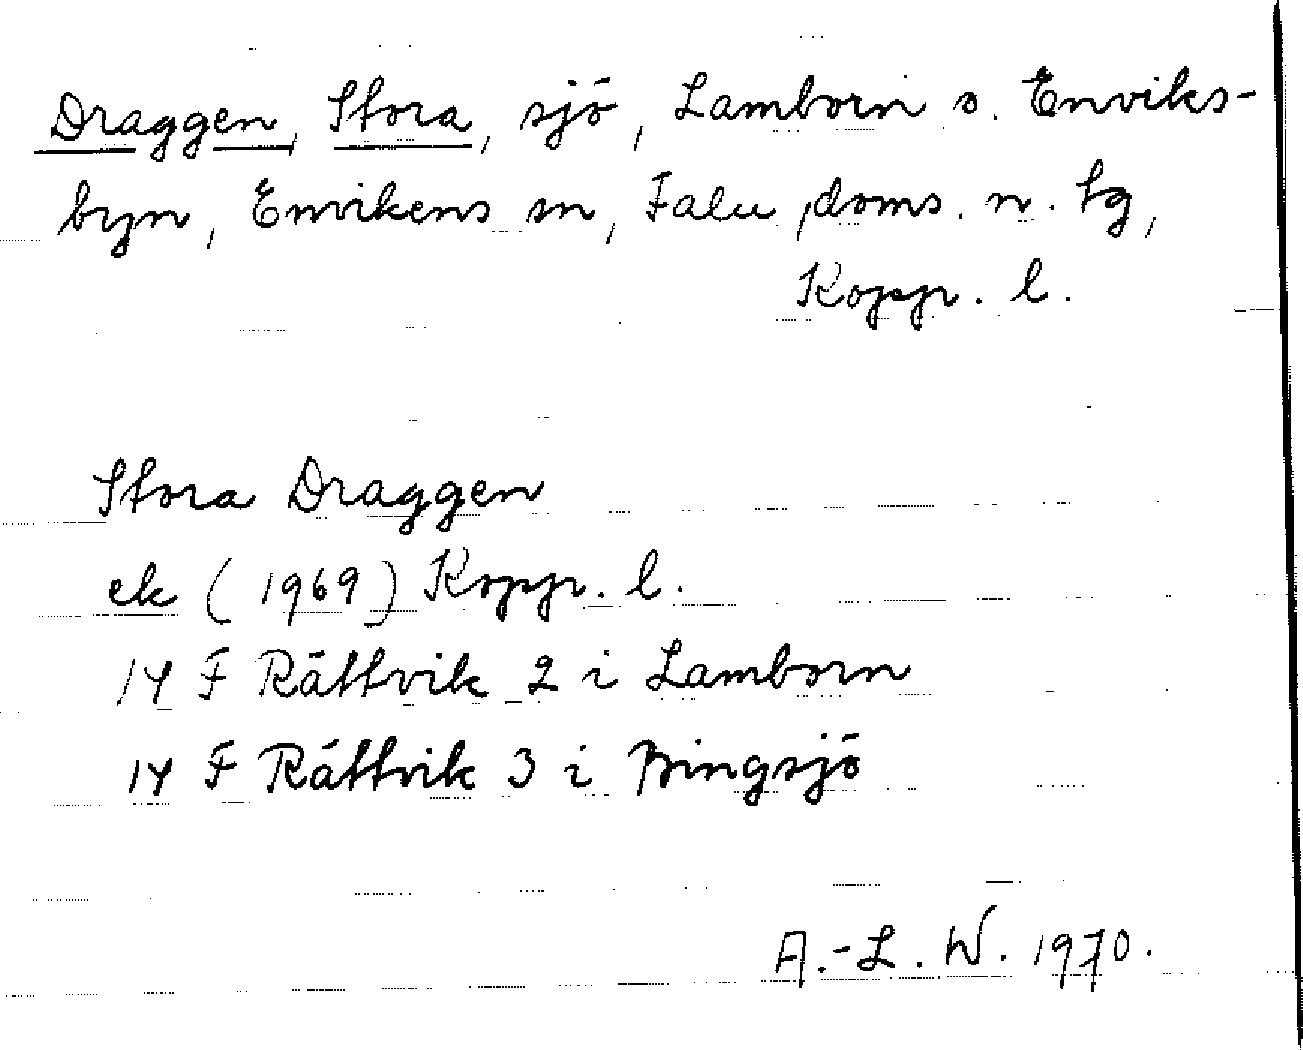 Draggen, Stora, sjö, Lamborn o. Enviks-
byn, Envikens sn, Falu doms. n. tg,
Kopp. l.
Stora Draggen
ek (1969) Kopp. l.
14 F Rättvik 2 i Lamborn
14 F Rättvik 3 i Bingsjö
A.-L. W. 1970.